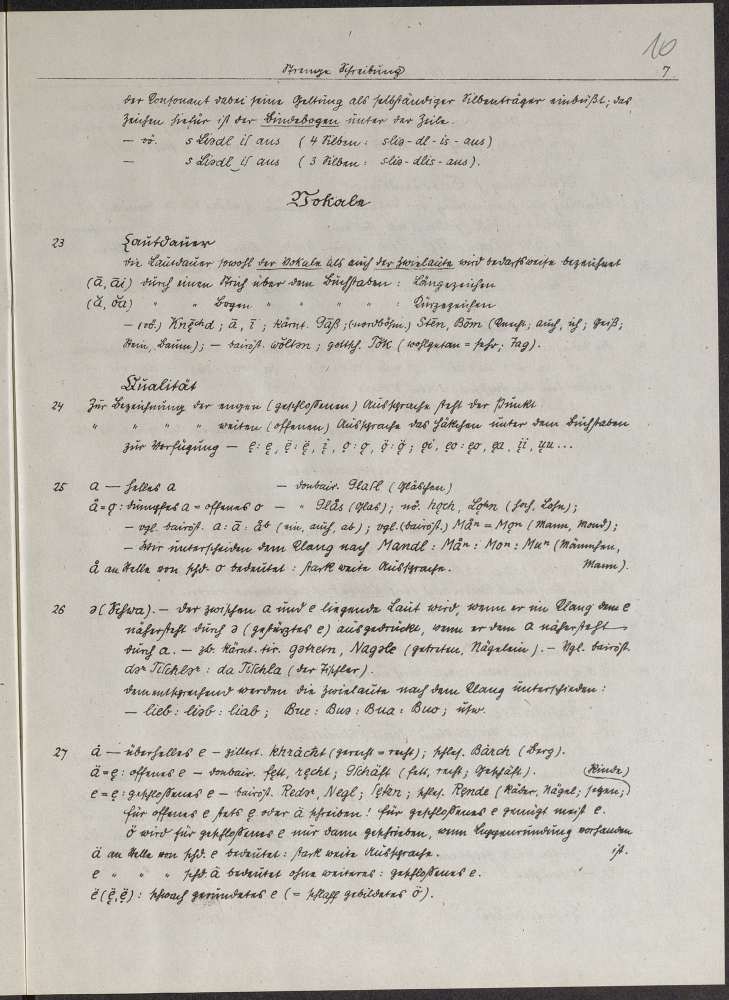 10
Strenge Schreibung 7
der Konsonant dabei seine Geltung als selbständiger Silbenträger einbüßt; das
Zeichen hiefür ist der Bindebogen unter der Zeile.
— nö. s Liədl is aus (4 Silben: sliə-dl-is-aus)
— s Liədl‿is aus (3 Silben: sliə-dlis-aus).
Vokale
23 Lautdauer
Die Lautdauer sowohl der Vokale als auch der Zwielaute wird bedarfsweise bezeichnet
(ā, āi) durch einen Strich über dem Buchstaben: Längezeichen
(ă, ŏa) " " Bogen " " " " : Kürzezeichen
— (oö.) Knę̄chd; ā, ī; kärnt. Gāß; (nordböhm.) Stēn, Bōm (Knecht; auch, ich; Geiß;
Stein, Baum); — bairöst. wŏltən; gottsch. Tŏk (wohlgetan = sehr; Tag).
Qualität
24 Zur Bezeichnung der engen (geschlossenen) Aussprache steht der Punkt
" " " " weiten (offenen) Aussprache das Häkchen unter dem Buchstaben
zur Verfügung —
25 a — helles a — donbair. Glasl (Gläschen)
å = ǫ: dumpfes a = offenes o — " Glås (Glas); nö. hǫch, Lǫhn (hoch, Lohn);
— vgl. bairöst. a: ā: åb (ein, auch, ab); vgl. (bairöst.) Måⁿ = Moⁿ (Mann, Mond);
— Wir unterscheiden dem Klang nach Mandl: Måⁿ: Moⁿ: Muⁿ (Männchen,
å an Stelle von schd. o bedeutet: stark weite Aussprache. Mann).
26 ə (Schwa). — Der zwischen a und e liegende Laut wird, wenn er im Klang dem e
nähersteht durch ə (gestürztes e) ausgedrückt, wenn er dem a nähersteht —
durch a. — zb. kärnt. tir. gətretn, Nagəle (getreten, Nägelein). — Vgl. bairöst.
dəʳ Tischləʳ: da Tischla (der Tischler).
Dementsprechend werden die Zwielaute nach dem Klang unterschieden:
— lieb: liəb: liab; Bue: Buə: Bua: Buo; usw.
27 á — überhelles e — zillert. khrácht (gerecht = recht); schles. Bárch (Berg).
ä = ę: offenes e — donbair. fętt, ręcht; Gschäft (fett, recht; Geschäft). (Rinde)
e = ẹ: geschlossenes e — bairöst. Redəʳ, Negl; sẹgən; schles. Rẹnde (Räder, Nägel; segen;)
für offenes e stets ę oder ä schreiben! für geschlossenes e genügt meist e.
ö wird für geschlossenes e nur dann geschrieben, wenn Lippenrundung vorhanden
ä an Stelle von schd. e bedeutet: stark weite Aussprache. ist.
e " " " schd. ä bedeutet ohne weiteres: geschlossenes e.
ë (ẹ̈, ę̈): schwach gerundetes e (= schlaff gebildetes ö).